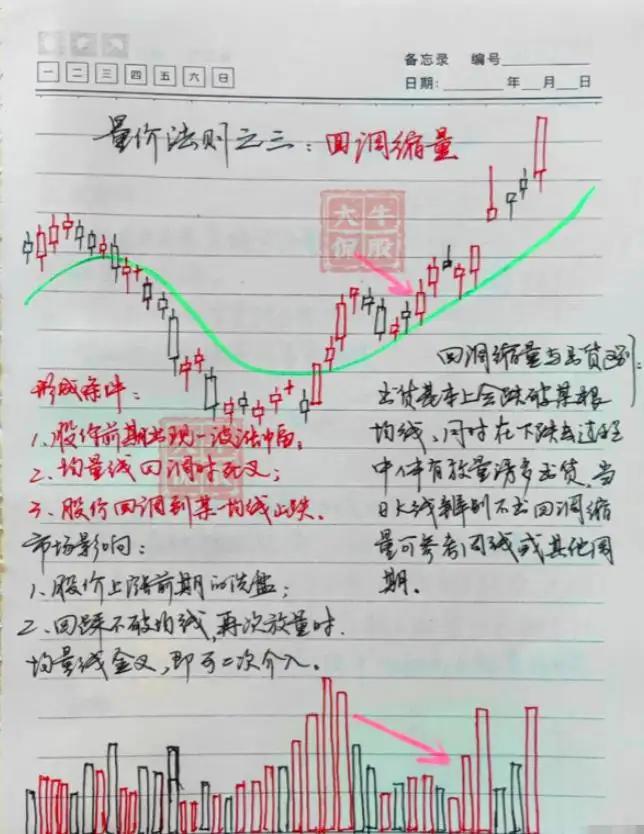 备忘录 编号
一 二 三 四 五 六 日
日期: 年 月 日
量价法则之三：回调缩量
大牛
侃股
回调缩量与出货区别：
形成条件：
出货基本上会跌破某根
均线，同时在下跌过程
1、股价前期出现一波涨幅；
中伴有放量诱多出货，当
2、均量线回调时死叉；
日K线辨别不出回调缩
3、股价回调到某一均线止跌。
量可参考周线或其他周
期。
市场影响：
1、股价上涨前期的洗盘；
2、回踩不破均线，再次放量时，
均量线金叉，即可二次介入。